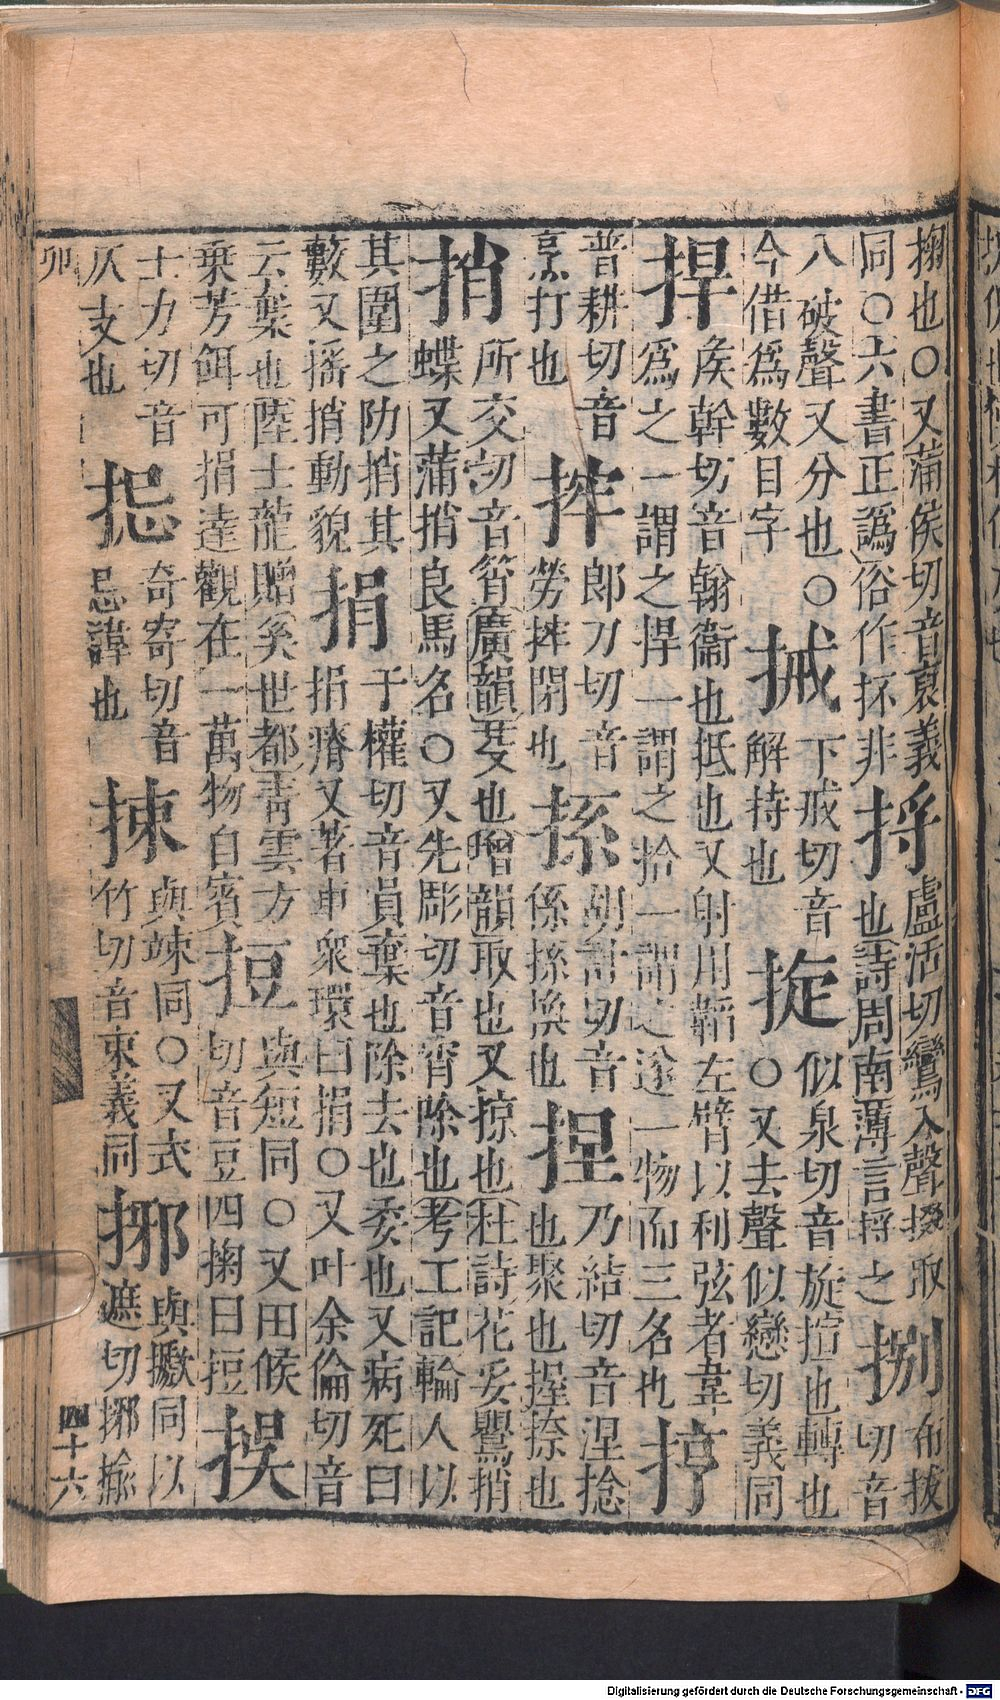 掬也○又蒲侯切音裒義
同○六書正譌俗作抔非
捋
盧活切鸞入聲掇取
也詩周南薄言捋之
捌
布拔
切音
八破聲又分也○
今借爲數目字
下戒切音
解持也
似泉切音旋揎也轉也
○又去聲似戀切義同
捍
矦幹切音翰衞也抵也又射用韜左臂以利弦者韋
爲之一謂之捍一謂之拾一謂之遂一物而三名也
普耕切音
烹打也
郎刀切音
勞閉也
胡計切音
係換也
捏
乃結切音涅捻
也聚也捏捺也
捎
所交切音筲廣韻芟也增韻取也又掠也杜詩花妥鸎捎
蝶又蒲捎良馬名○又先彫切音宵除也考工記輪人以
其圍之阞捎其
藪又揺捎動貌
捐
于權切音員棄也除去也委也又病死曰
捐瘠又著車衆環曰捐○又叶余倫切音
云葉也陸士龍贈奚世都青雲方
乗芳餌可捐達觀在一萬物自賓
與短同○又田候
切音豆四掬曰
士力切音
仄支也
奇寄切音
忌諱也
捒
與竦同○又式
竹切音束義同
捓
與擨同以
遮切捓揄
卯
四十六
Digitalisierung gefördert durch die Deutsche Forschungsgemeinschaft - DFG